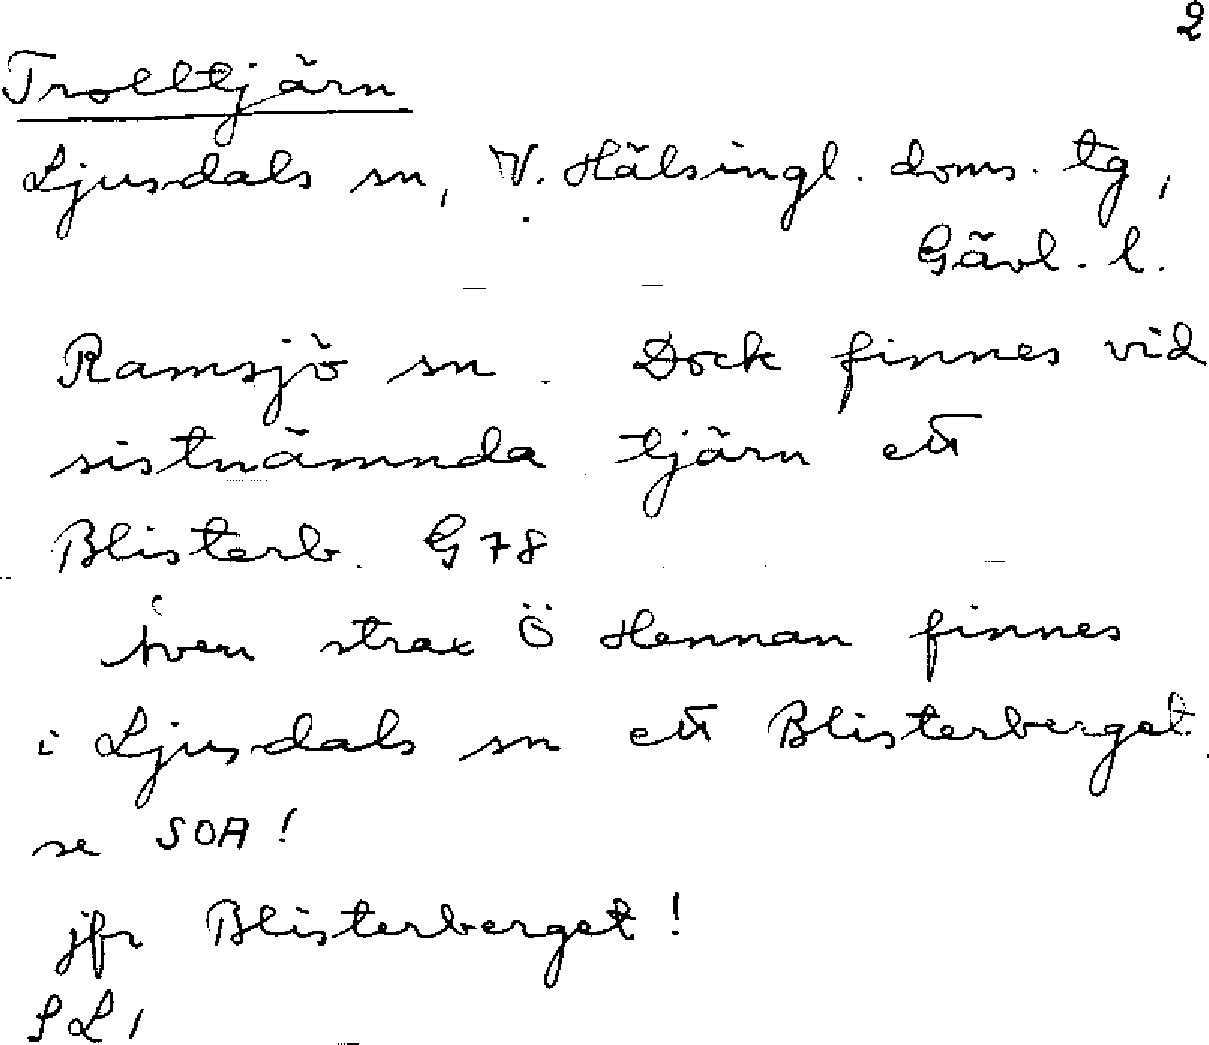 2
Trolltjärn
Ljusdals sn, V. Hälsingl. doms. tg,
Gävl. l.
Ramsjö sn. Dock finnes vid
sistnämnda tjärn ett
Blisterb. G78
Även strax Ö Hennan finnes
i Ljusdals sn ett Blisterberget.
se SOA!
jfr Blisterberget!